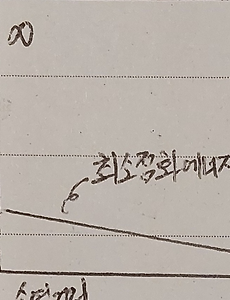 ∞
최소점화에너지